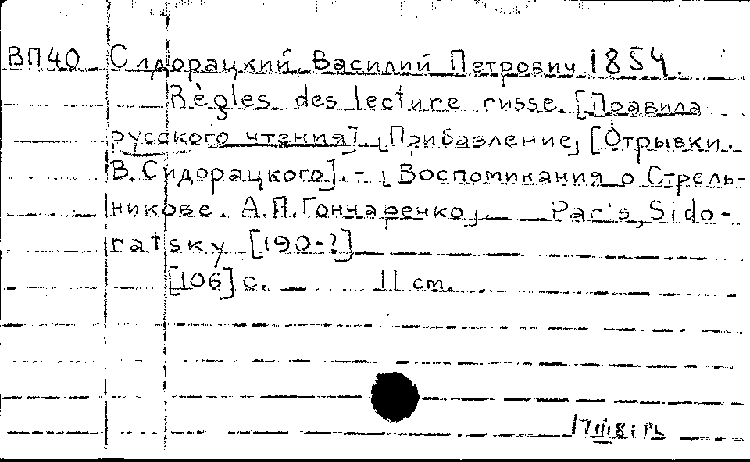 ВП40 Сидорацкий Василий Петрович 1854.
Règles des lecture russe. [Правила
русского чтения]. [Прибавление, [Отрывки.
В. Сидорацкого]. - , Воспоминания о Стрель-
никове. А.П. Гончаренко, Paris, Sido-
ratsky [190-?]
[106] с. 11 cm.